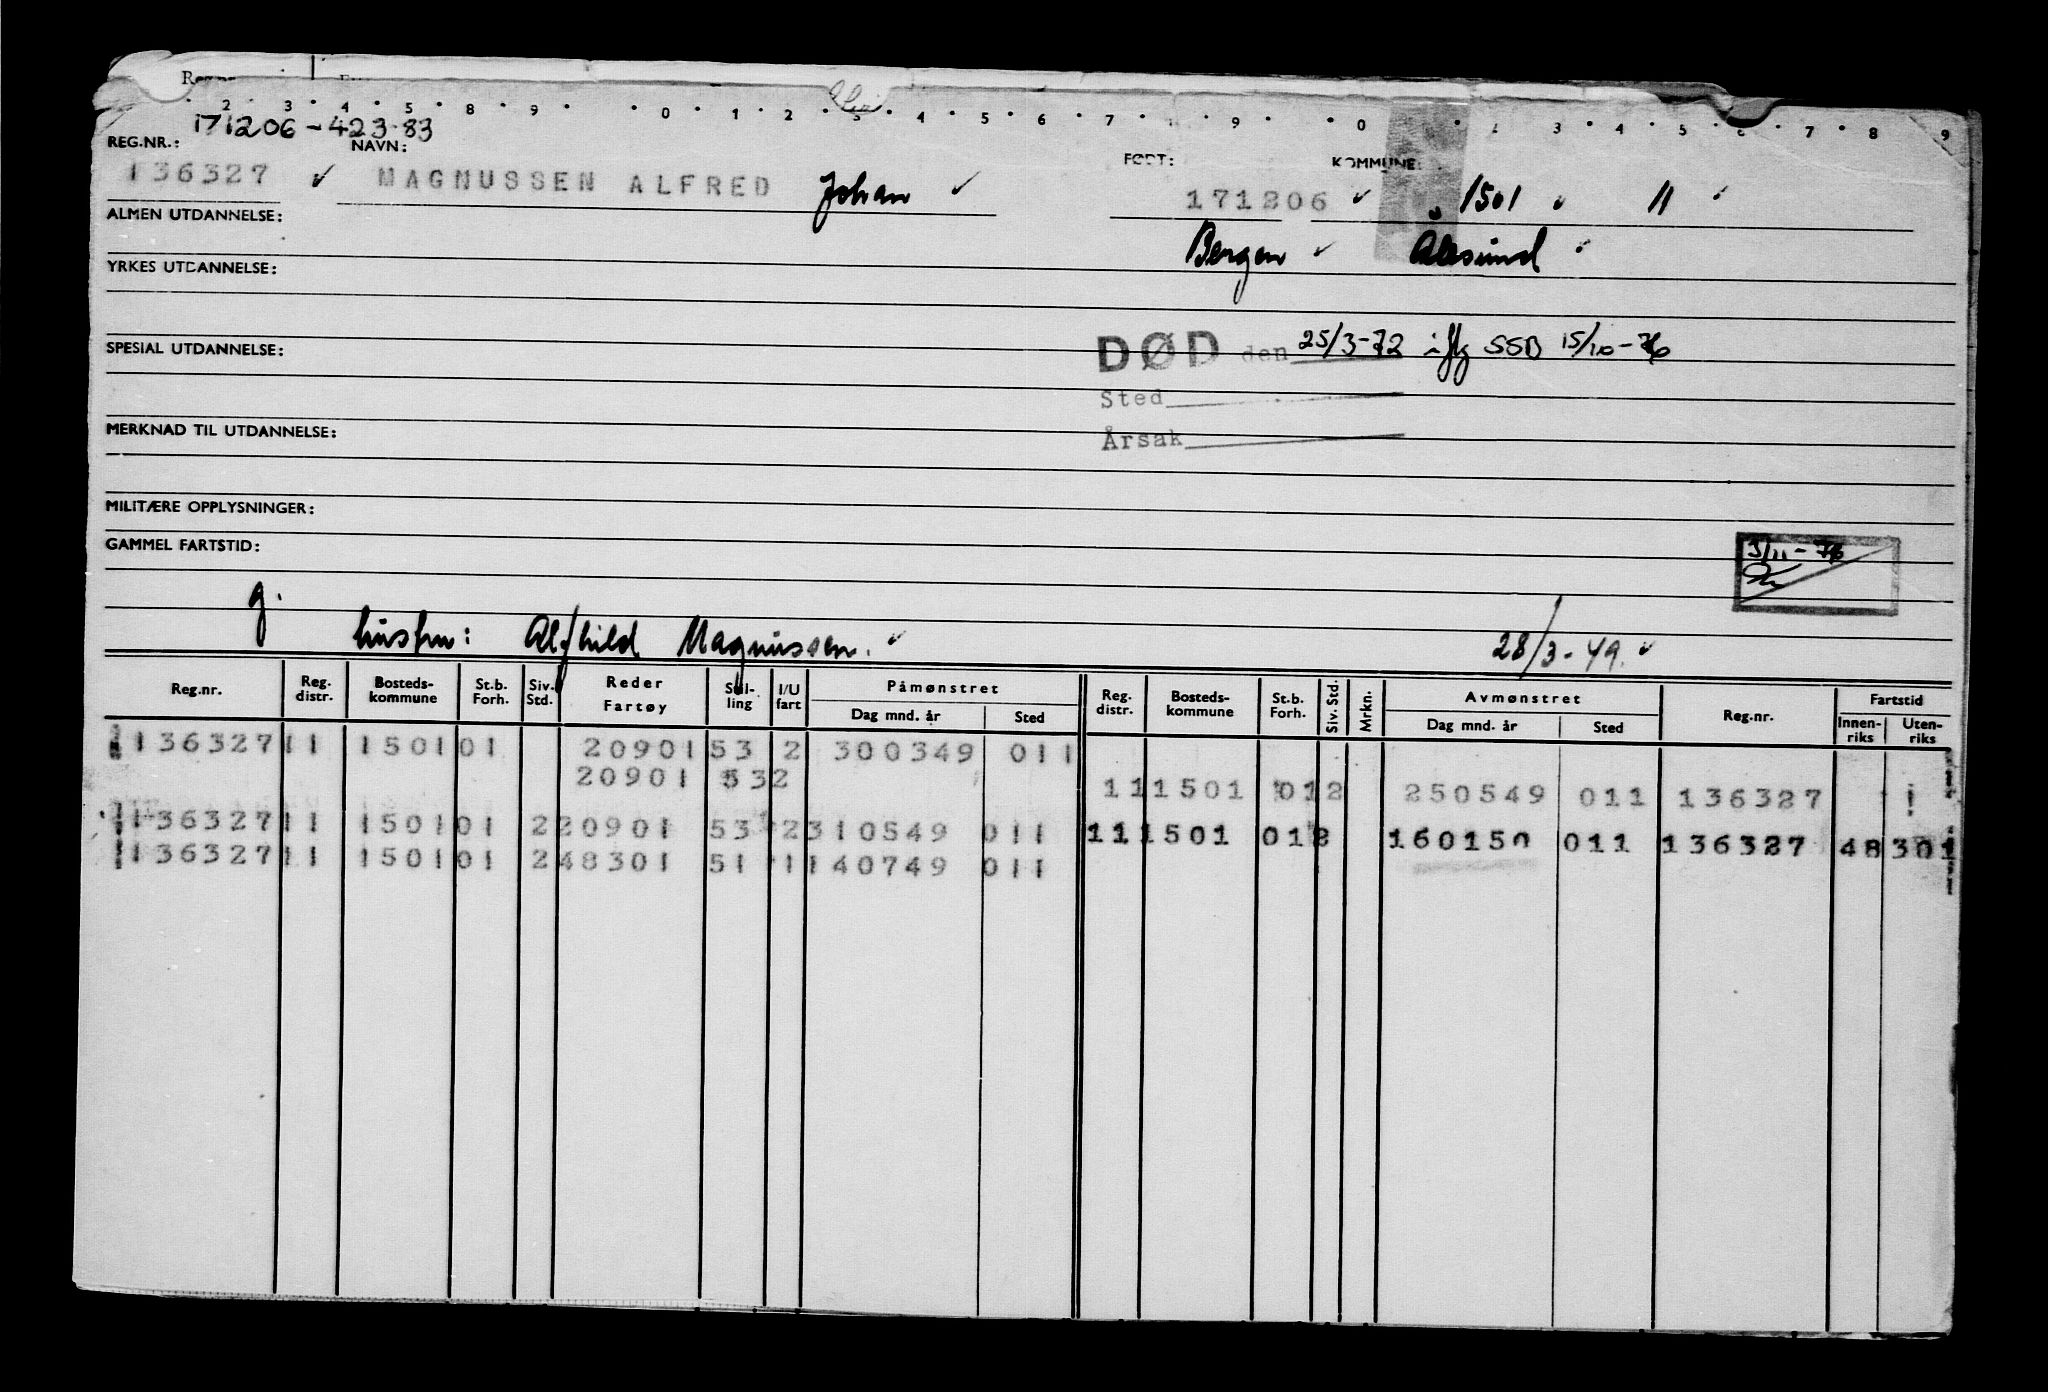 2 3 4 5 8 9 0 1 2 3 4 5 6 7 9 0 2 3 4 5 6 7 8 9
171206-42383
REG.NR.: NAVN: FØDT: KOMMUNE:
136327 MAGNUSSEN ALFRED Johan 171206 1501 11
ALMEN UTDANNELSE:
Bergen Ålesund
YRKES UTDANNELSE:
DØD den 25/3-72 iflg SSB 15/10-76
SPESIAL UTDANNELSE:
Sted
MERKNAD TIL UTDANNELSE:
Årsak
MILITÆRE OPPLYSNINGER:
GAMMEL FARTSTID:
3/11-76
g.
hustru: Alfhild Magnussen. 28/3-49.
Reg.nr. Reg. distr. Bosteds-kommune St.b. Forh. Siv. Std. Reder Fartøy Stil-ling I/U fart Påmønstret Dag mnd. år Sted Reg. distr. Bosteds-kommune St.b. Forh. Siv. Std. Mrkn. Avmønstret Dag mnd. år Sted Reg.nr. Fartstid Innen-riks Uten-riks
136327 11 1501 01 20901 53 2 300349 011
20901 53 2 11 1501 01 2 250549 011 136327
136327 11 1501 01 2 20901 53 2 310549 011 11 1501 01 2 160150 011 136327 48301
136327 11 1501 01 2 48301 51 1 140749 011